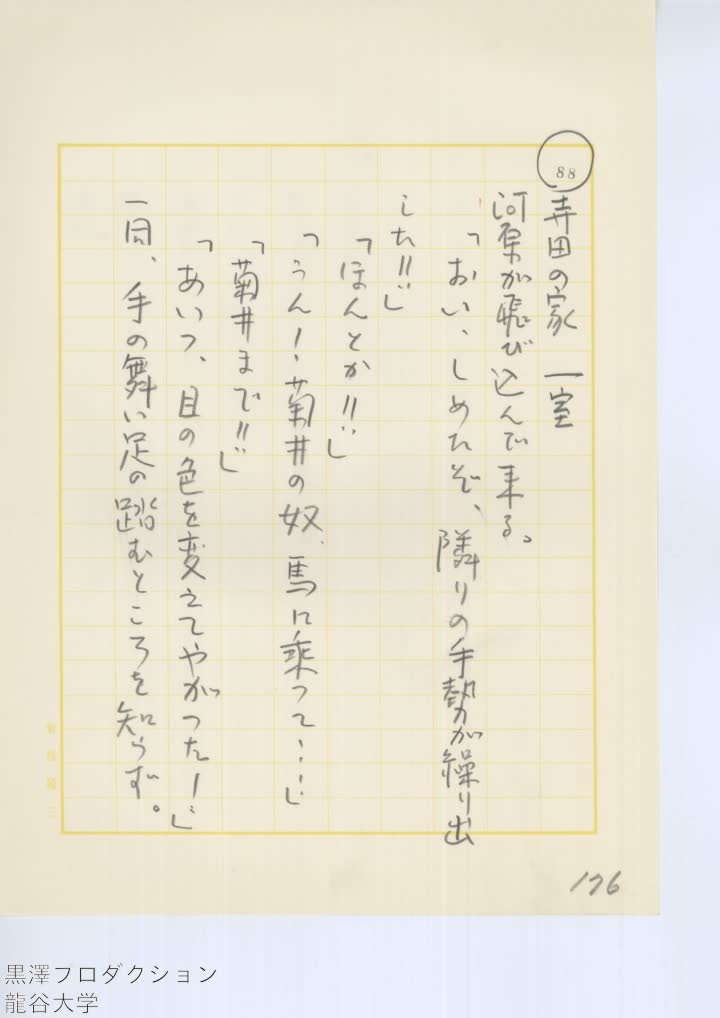 88
寺田の家 一室
河原が飛び込んで来る。
「おい、しめたぞ、隣りの手勢が繰り出
した!!」
「ほんとか!!」
「うん！菊井の奴、馬に乗って…」
「菊井まで!!」
「あいつ、目の色を変えてやがった！」
一同、手の舞い足の踏むところを知らず。
176
黒澤プロダクション
龍谷大学